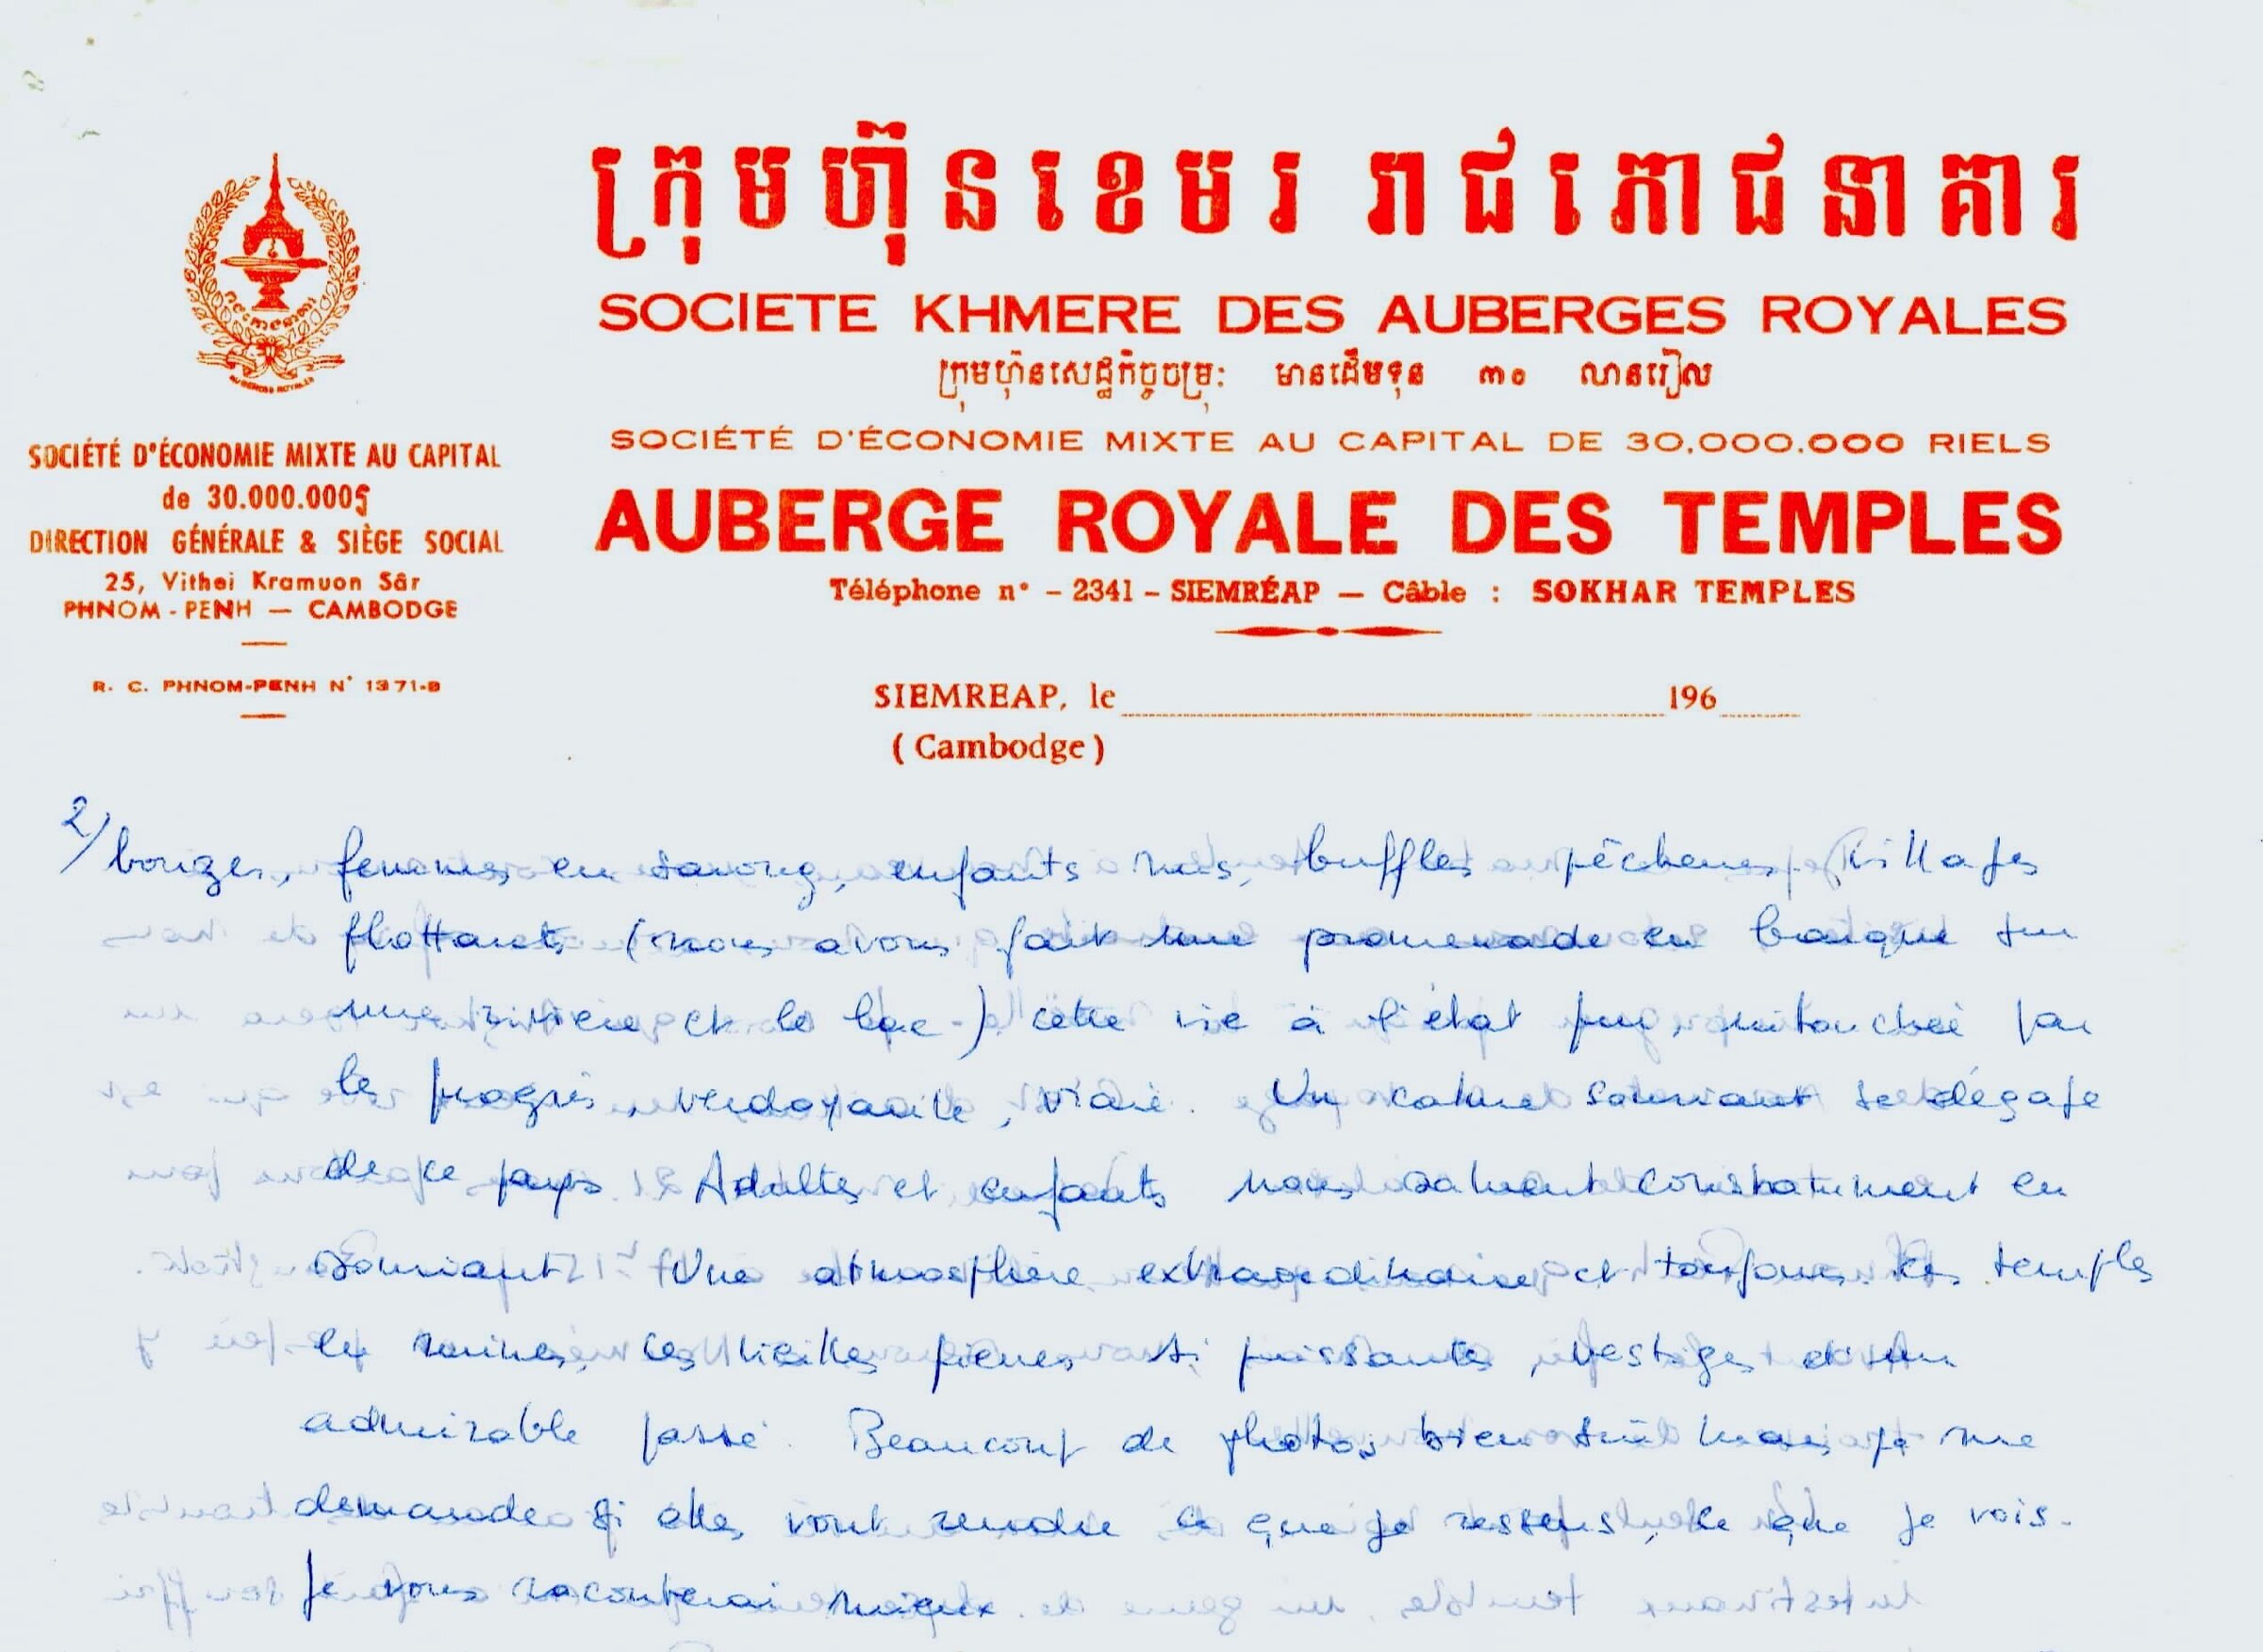 ក្រុមហ៊ុនខេមរ រាជភោជនាគារ
SOCIETE KHMERE DES AUBERGES ROYALES
ក្រុមហ៊ុនសេដ្ឋកិច្ចចម្រុះ មានដើមទុន ៣០ លានរៀល
SOCIÉTÉ D'ÉCONOMIE MIXTE AU CAPITAL DE 30.000.000 RIELS
AUBERGE ROYALE DES TEMPLES
Téléphone n° – 2341 – SIEMRÉAP — Câble : SOKHAR TEMPLES
SOCIÉTÉ D'ÉCONOMIE MIXTE AU CAPITAL
de 30.000.000
DIRECTION GÉNÉRALE & SIÈGE SOCIAL
25, Vithei Kramuon Sâr
PHNOM-PENH — CAMBODGE
R. C. PHNOM-PENH N° 1371-B
SIEMREAP, le 196
(Cambodge)
2/ bonzes, femmes en sarong, enfants nus, buffles pêcheurs, villages
flottants (nous avons fait une promenade en barque sur
une rivière et le lac) cette vie à l'état pur, intouchée par
les progrès, verdoyante, vraie. Un calme souriant se dégage
de ce pays. Adultes et enfants nous saluent constamment en
souriant. Une atmosphère extraordinaire et toujours les temples
les ruines, ces vieilles pierres si puissantes, vestiges d'un
admirable passé. Beaucoup de photos bien sûr mais je me
demande si elles vont rendre ce que je ressens, ce que je vois.
Je vous raconterai mieux